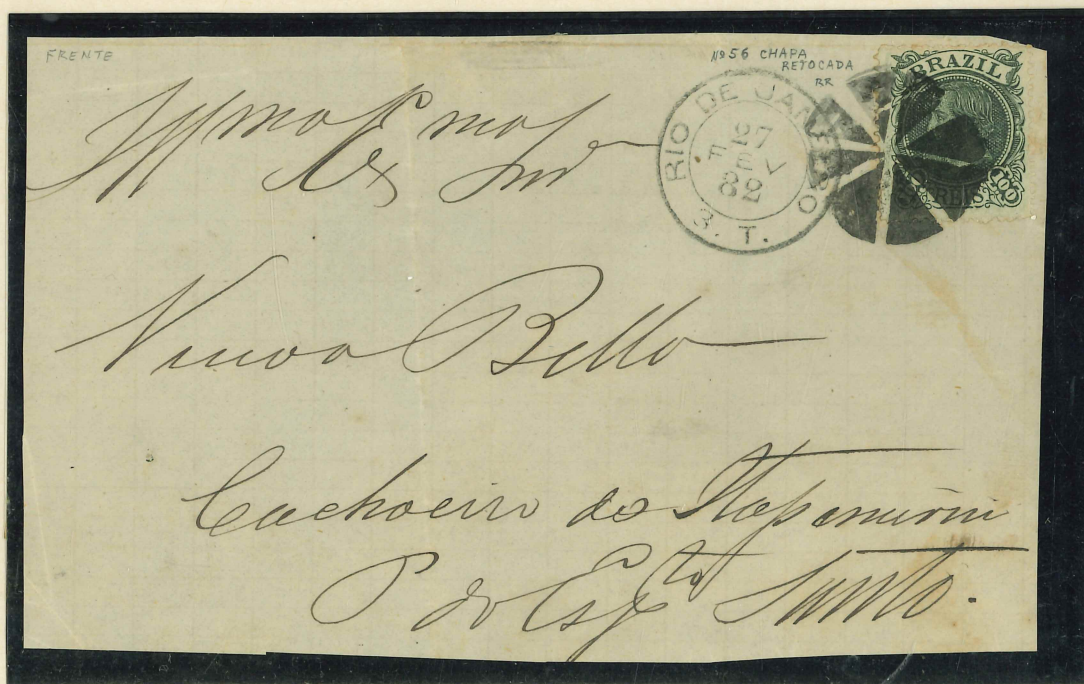 FRENTE
Nº 56 CHAPA
RETOCADA
RR
BRAZIL
100
REIS
RIO DE JANEIRO
27
FEV
82
3. T.
Illma Exma
Snrª
Viuva Bello
Cachoeiro do Itapemirim
P do Esp.to Santo.